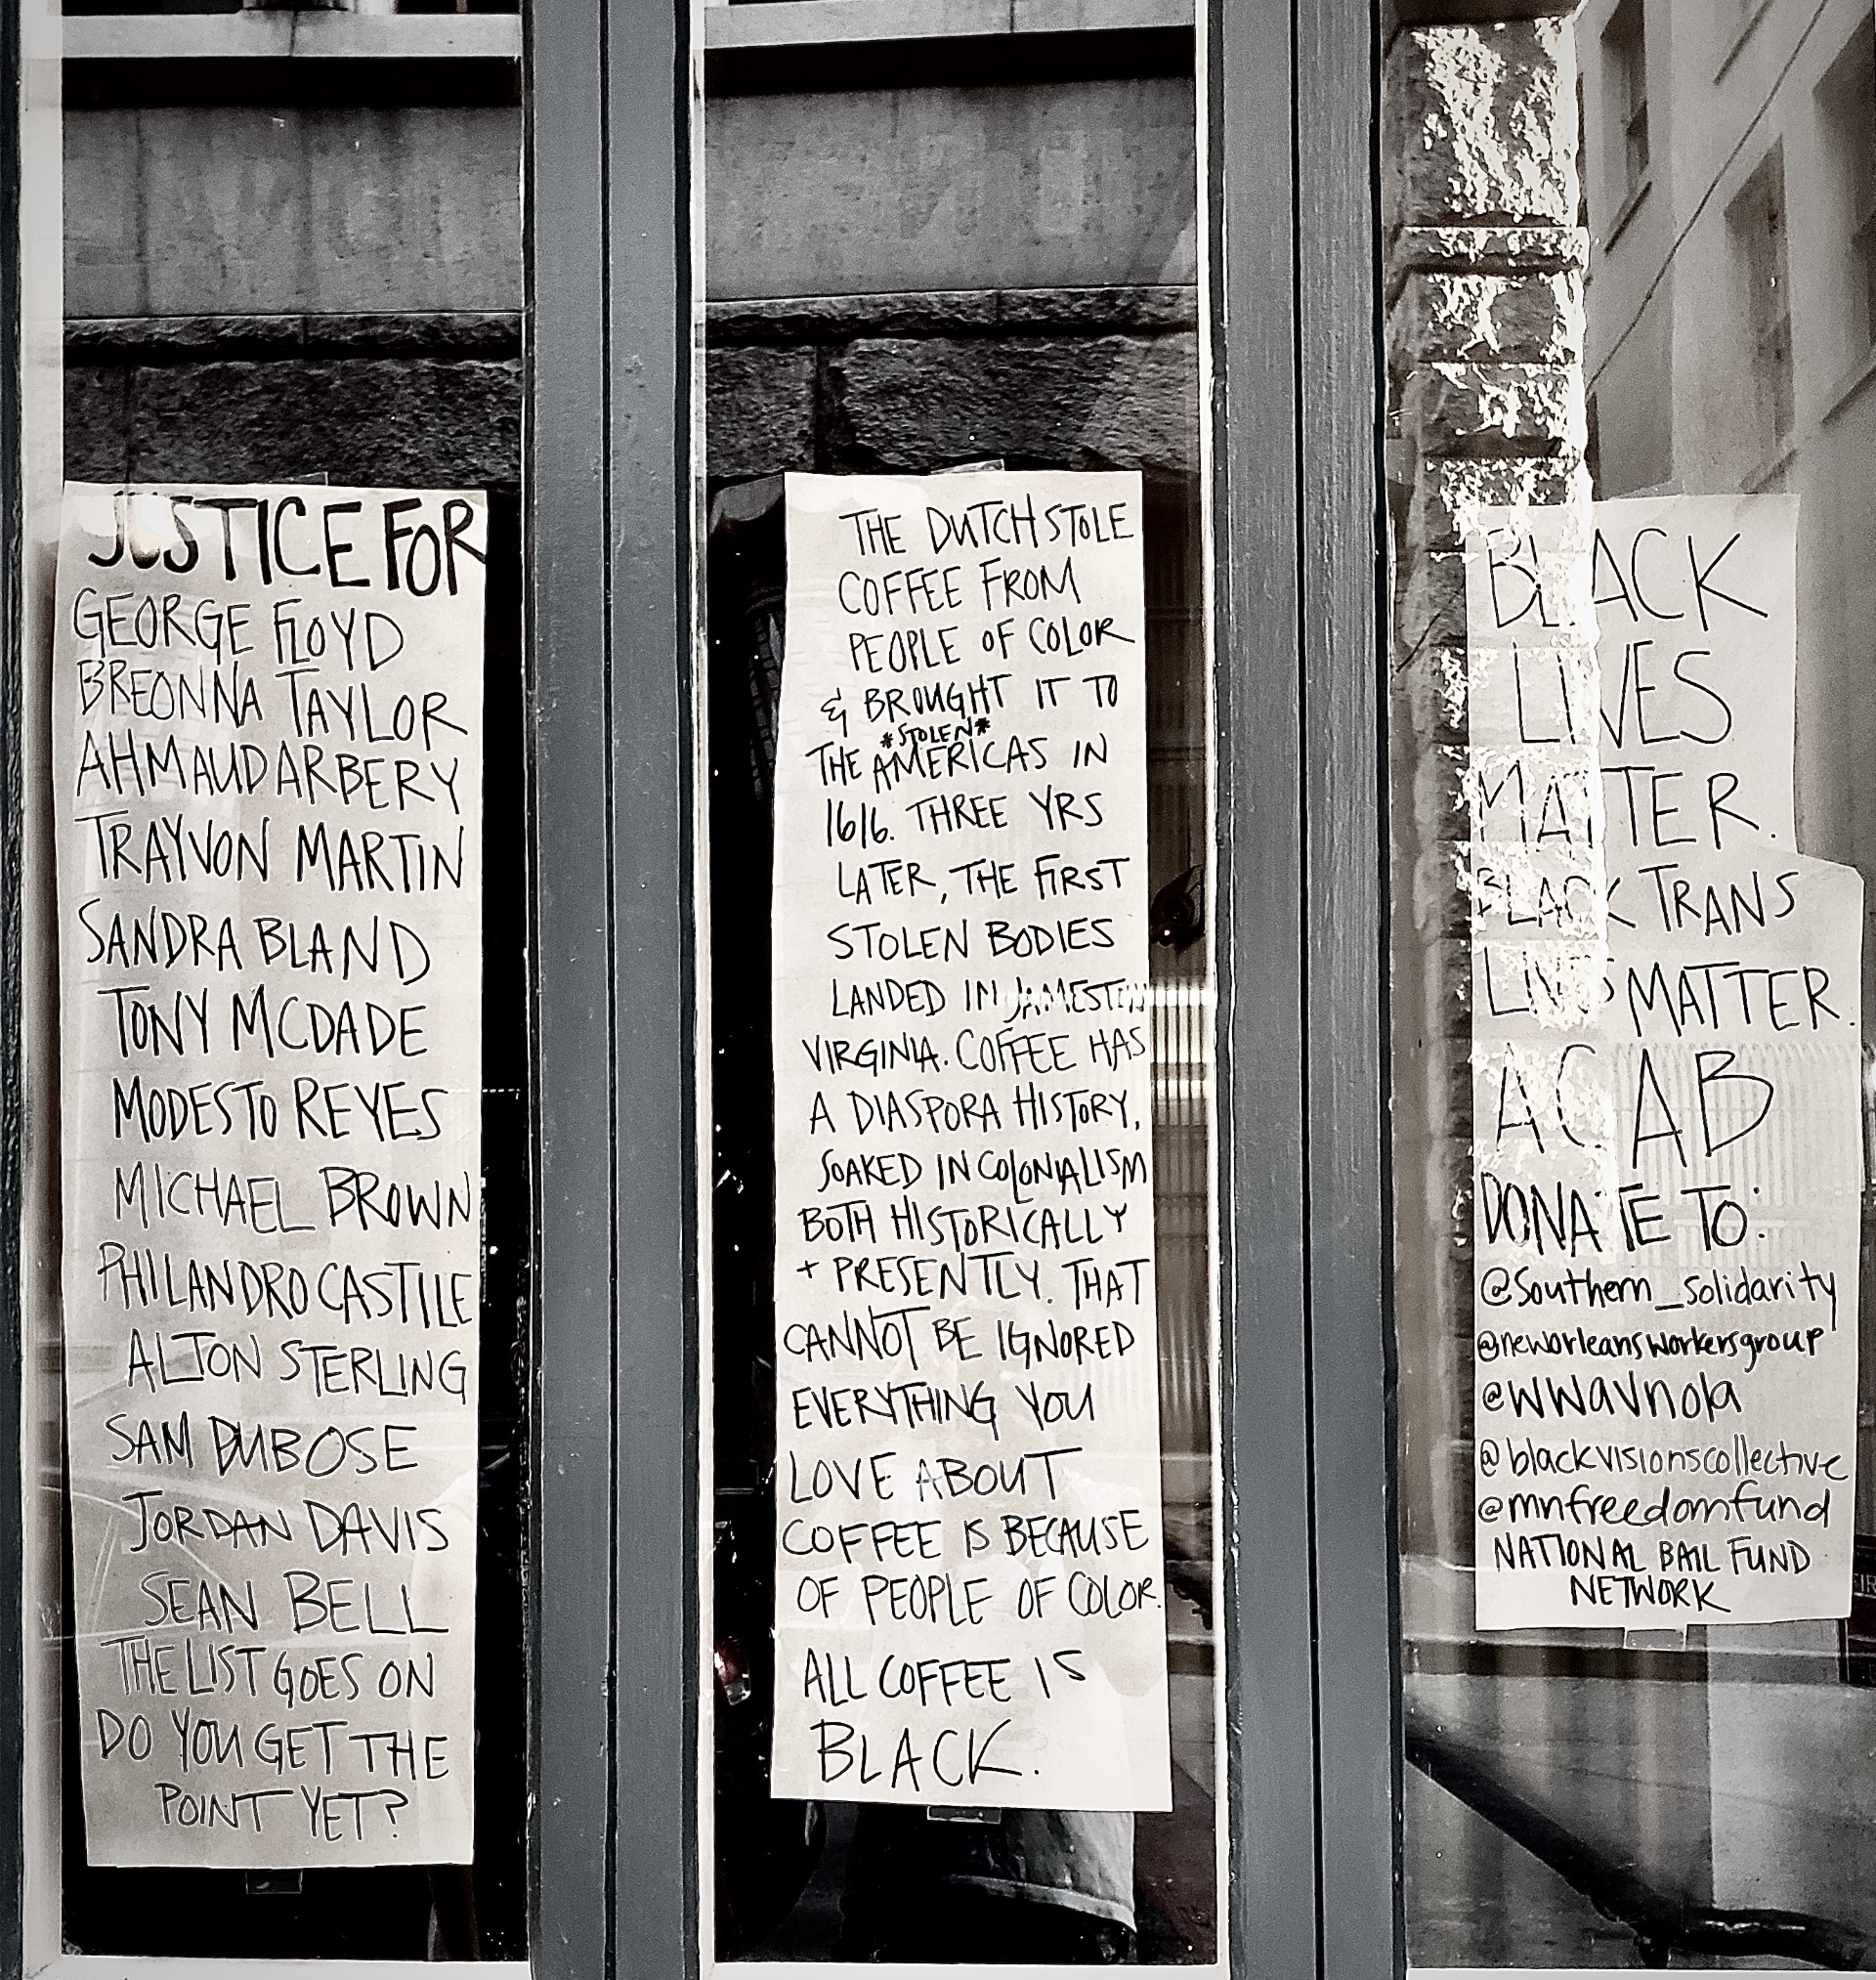 JUSTICE FOR
GEORGE FLOYD
BREONNA TAYLOR
AHMAUD ARBERY
TRAYVON MARTIN
SANDRA BLAND
TONY MCDADE
MODESTO REYES
MICHAEL BROWN
PHILANDRO CASTILE
ALTON STERLING
SAM DUBOSE
JORDAN DAVIS
SEAN BELL
THE LIST GOES ON
DO YOU GET THE
POINT YET?
THE DUTCH STOLE
COFFEE FROM
PEOPLE OF COLOR
& BROUGHT IT TO
*STOLEN*
THE AMERICAS IN
1616. THREE YRS
LATER, THE FIRST
STOLEN BODIES
LANDED IN
VIRGINIA. COFFEE HAS
A DIASPORA HISTORY,
SOAKED IN COLONIALISM
BOTH HISTORICALLY
+ PRESENTLY. THAT
CANNOT BE IGNORED
EVERYTHING YOU
LOVE ABOUT
COFFEE IS BECAUSE
OF PEOPLE OF COLOR.
ALL COFFEE IS
BLACK.
BLACK
LIVES
MATTER.
BLACK TRANS
LIVES MATTER.
ACAB
DONATE TO:
@Southern_solidarity
@neworleansworkersgroup
@wwavnola
@blackvisionscollective
@mnfreedomfund
NATIONAL BAIL FUND
NETWORK